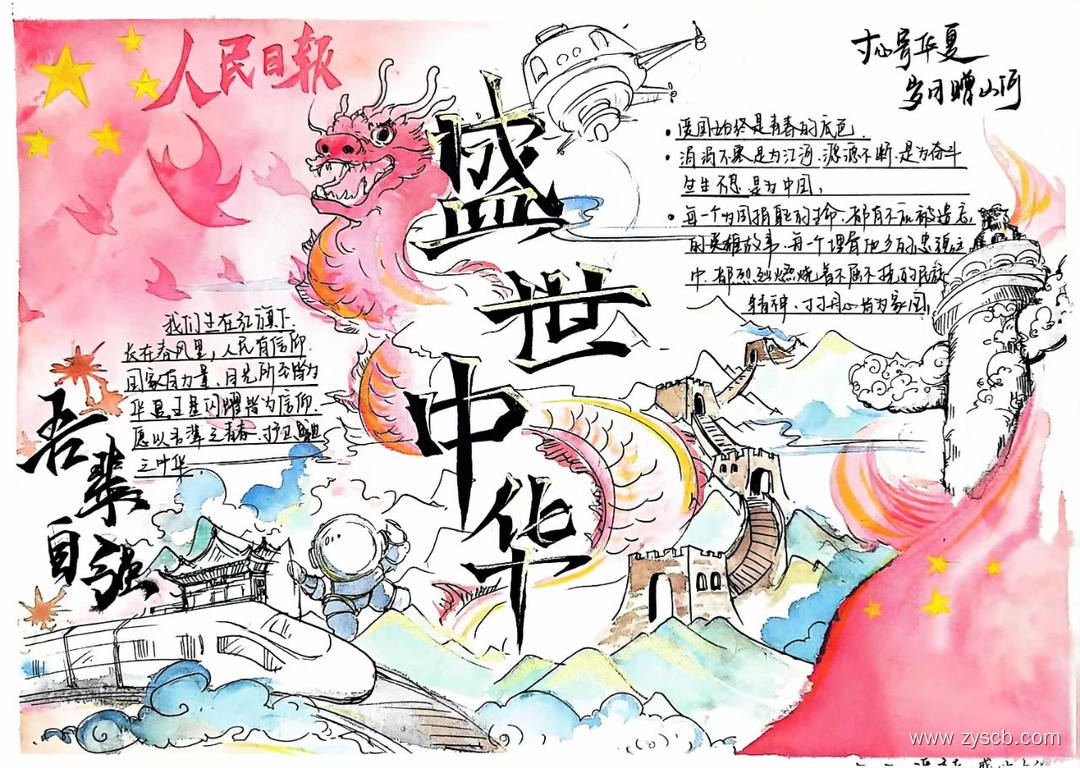 人民日报
盛世中华
寸心寄华夏
岁月赠山河
爱国始终是青春的底色
涓涓不累是为江河.源源不断.是为奋斗
生生不息 是为中国,
每一个为国捐躯的生命.都有不应被遗忘
的英雄故事.每一个埋骨他乡的忠魂
中.都烈烈燃烧着不屈不挠的民族
精神.寸寸丹心皆为家国
我们生在红旗下
长在春风里,人民有信仰
国家有力量、目光所至皆为
华夏五星闪耀皆为信仰.
愿以吾辈之青春.护卫盛世
之中华
吾辈自强
www.zyscb.com